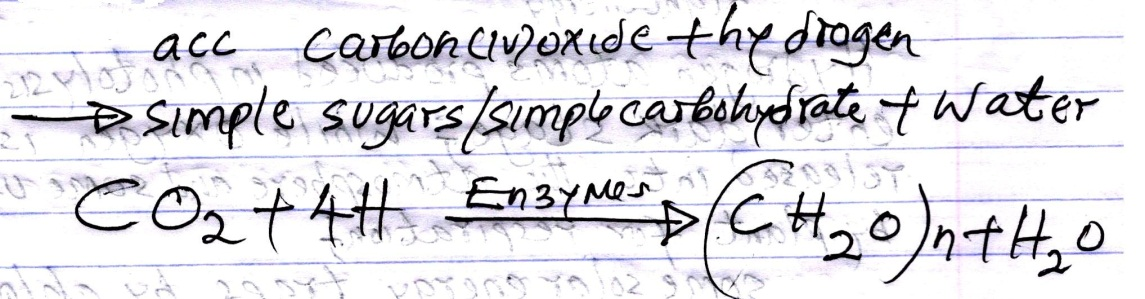 acc carbon(iv)oxide + hydrogen
→ simple sugars/simple carbohydrate + Water
CO₂ + 4H —Enzymes→ (CH₂O)n + H₂O